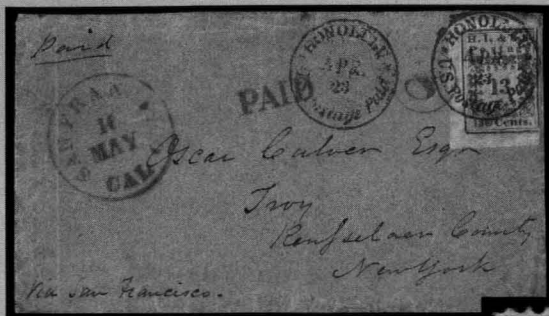 Paid
HONOLULU
APR.
23
U.S. Postage Paid
HONOLULU
U.S. Postage Paid
H.I. & U.S.
13
Cents.
PAID
SAN FRAN
16
MAY
CAL.
Oscar Calven Esqr
Troy
Renſselaer County
New York
Via San Francisco.